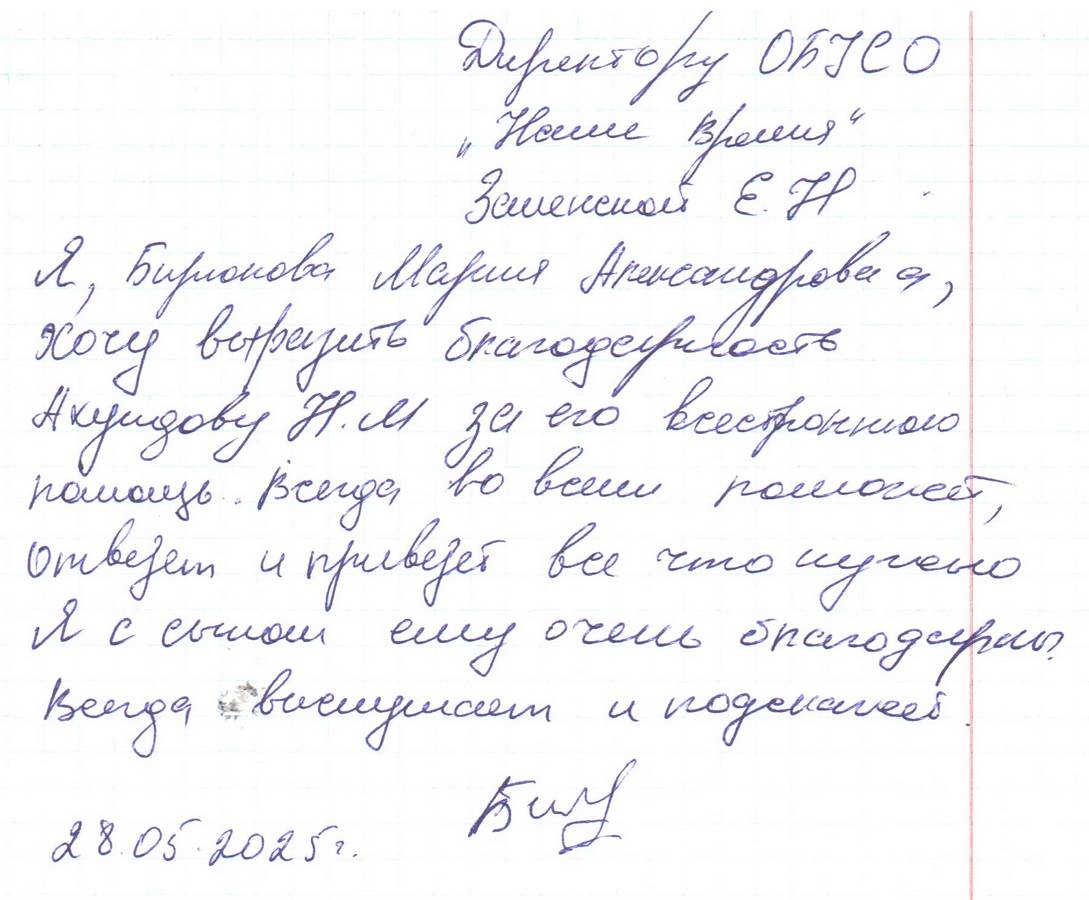 Директору ОБУСО
"Наше время"
Заменской Е.Н
Я, Бирюкова Мария Александровна,
хочу выразить благодарность
Ахундову Н.М за его всестороннюю
помощь. Всегда во всем поможет,
отвезет и привезет все что нужно
Я с сыном ему очень благодарны.
Всегда выслушает и подскажет
28.05.2025г.